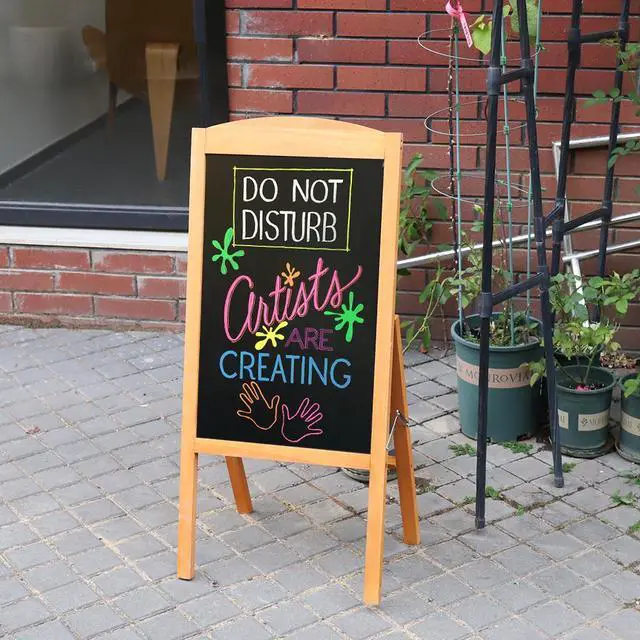 DO NOT
DISTURB
Artists
ARE
CREATING
MONROVIA